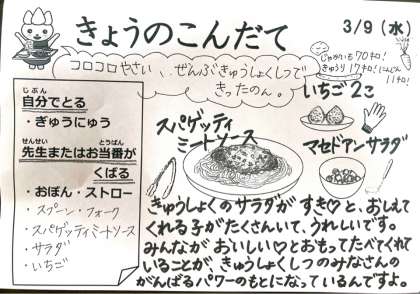 きょうのこんだて
3/9 (水)
コロコロやさい、、ぜんぶきゅうしょくしつで
きったのん。
じゃがいも 70キロ!
きゅうり 17キロ! にんじん
11キロ!
いちご2こ
じぶん
自分でとる
・ぎゅうにゅう
せんせい とうばん
先生またはお当番が
くばる
・おぼん・ストロー
・スプーン・フォーク
・スパゲッティミートソース
・サラダ
・いちご
スパゲッティ
ミートソース
マセドアンサラダ
きゅうしょくのサラダが すき♡と、おしえて
くれる子がたくさんいて、うれしいです。
みんなが おいしい♡とおもってたべてくれて
いることが、きゅうしょくしつのみなさんの
がんばるパワーのもとになっているんですよ。